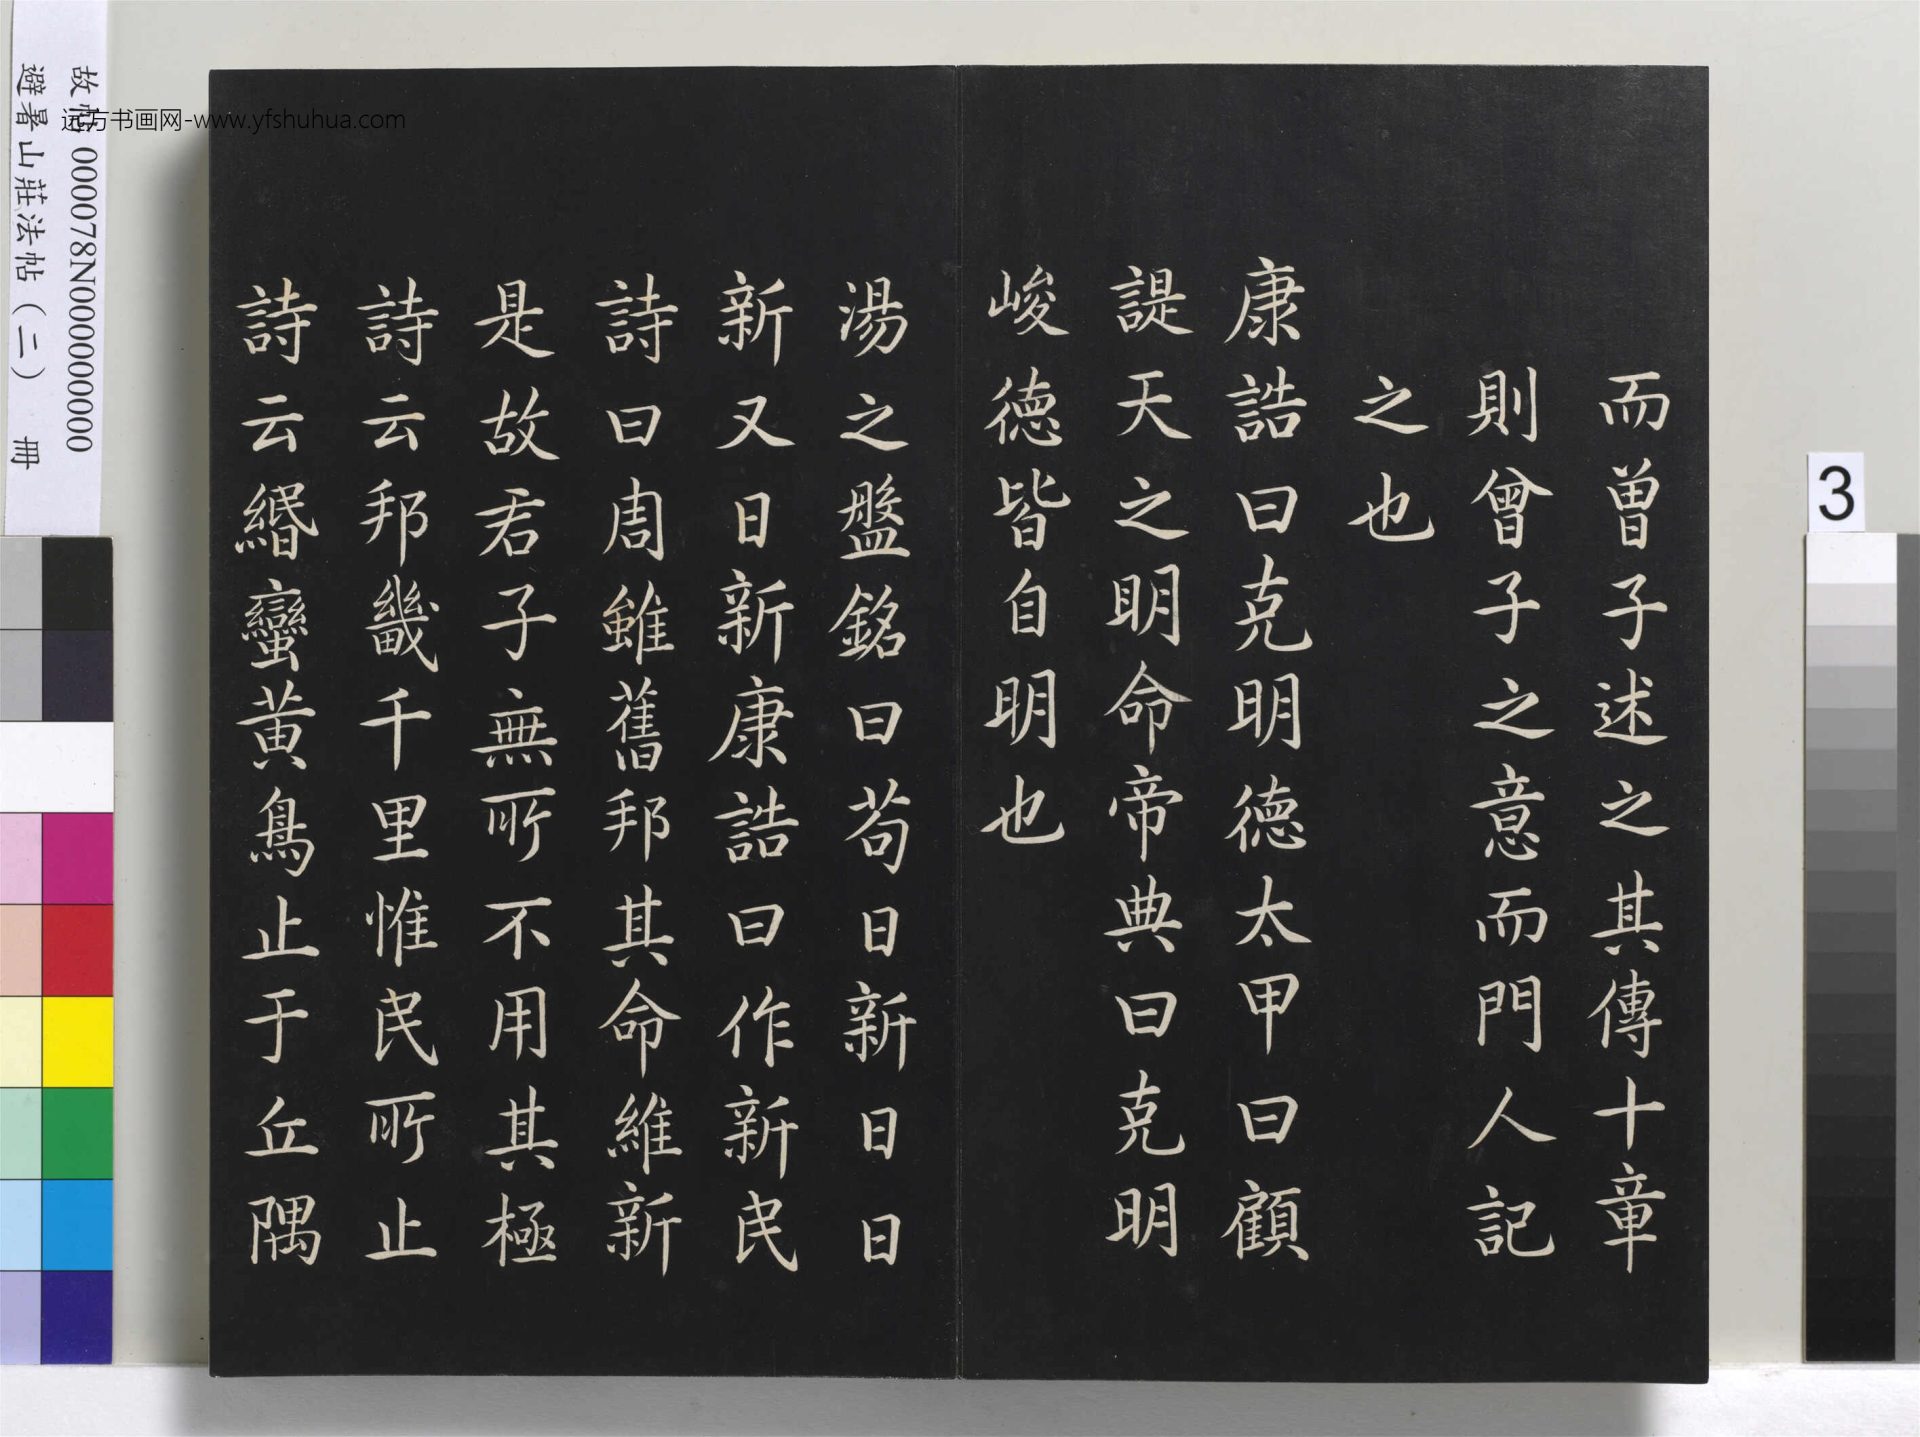 而曾子述之其傳十章
則曾子之意而門人記
之也
康誥曰克明德太甲曰顧
諟天之明命帝典曰克明
峻德皆自明也
湯之盤銘曰苟日新日日
新又日新康誥曰作新民
詩曰周雖舊邦其命維新
是故君子無所不用其極
詩云邦畿千里惟民所止
詩云緡蠻黃鳥止于丘隅
避暑山莊法帖（二） 冊
000078N000000000
远方书画网-www.yfshuhua.com
3